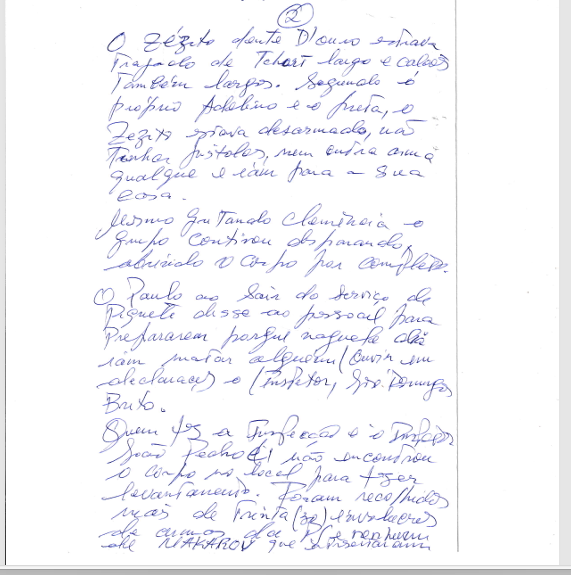 2
O Zézito dente D'ouro estava
Trajado de Tchort largo e calças
Também largos. Segundo o
próprio Adelino e o preta, o
Zezito estava desarmado, não
Tinha pistolas, nem outra arma
qualque e iam para a sua
casa.
Mesmo gritando clemência o
grupo continou disparando,
abrindo o corpo por completo.
O Paulo ao sair do serviço de
Piquete disse ao pessoal para
Prepararem porque naquele dia
iam matar alguem (ouvir em
declaraçes o (Instrutor, Domingos
Brito.
Quem fez a Inspecção é o
João Pedro não encontrou
o corpo no local para fazer
levantamento. Foram recolhidos
mais de Trinta (30) envolucros
de armas da e nenhum
de MAKAROV que